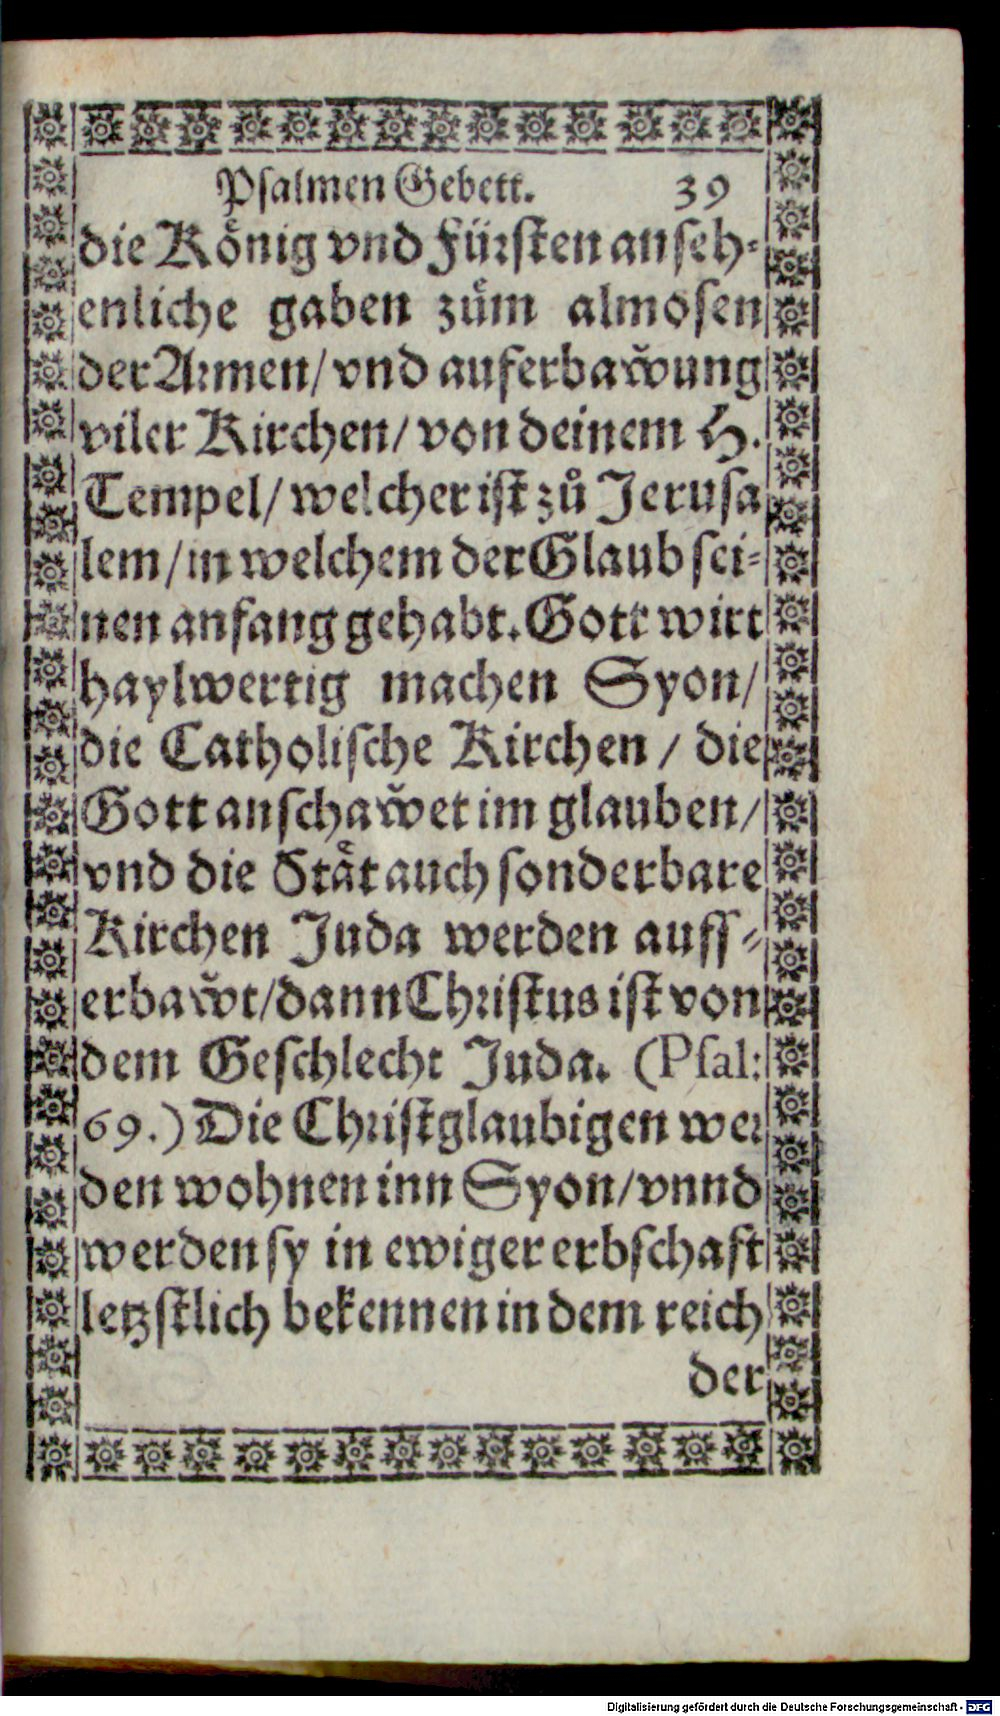 Psalmen Gebett. 39
die Koͤnig vnd Fuͤrsten anseh⸗
enliche gaben zuͤm almosen
der Armen/ vnd auferbaw̆ung
viler Kirchen/ von deinem H.
Tempel/ welcher ist zuͦ Jerusa
lem/ in welchem der Glaub sei⸗
nen anfang gehabt. Gott wirt
haylwertig machen Syon/
die Catholische Kirchen / die
Gott anschaw̆et im glauben/
vnd die Staͤt auch sonderbare
Kirchen Juda werden auff⸗
erbaw̆t/ dann Christus ist von
dem Geschlecht Juda. (Psal:
69.) Die Christglaubigen wer
den wohnen inn Syon/ vnnd
werden sy in ewiger erbschaft
letzstlich bekennen in dem reich
der
Digitalisierung gefördert durch die Deutsche Forschungsgemeinschaft - DFG